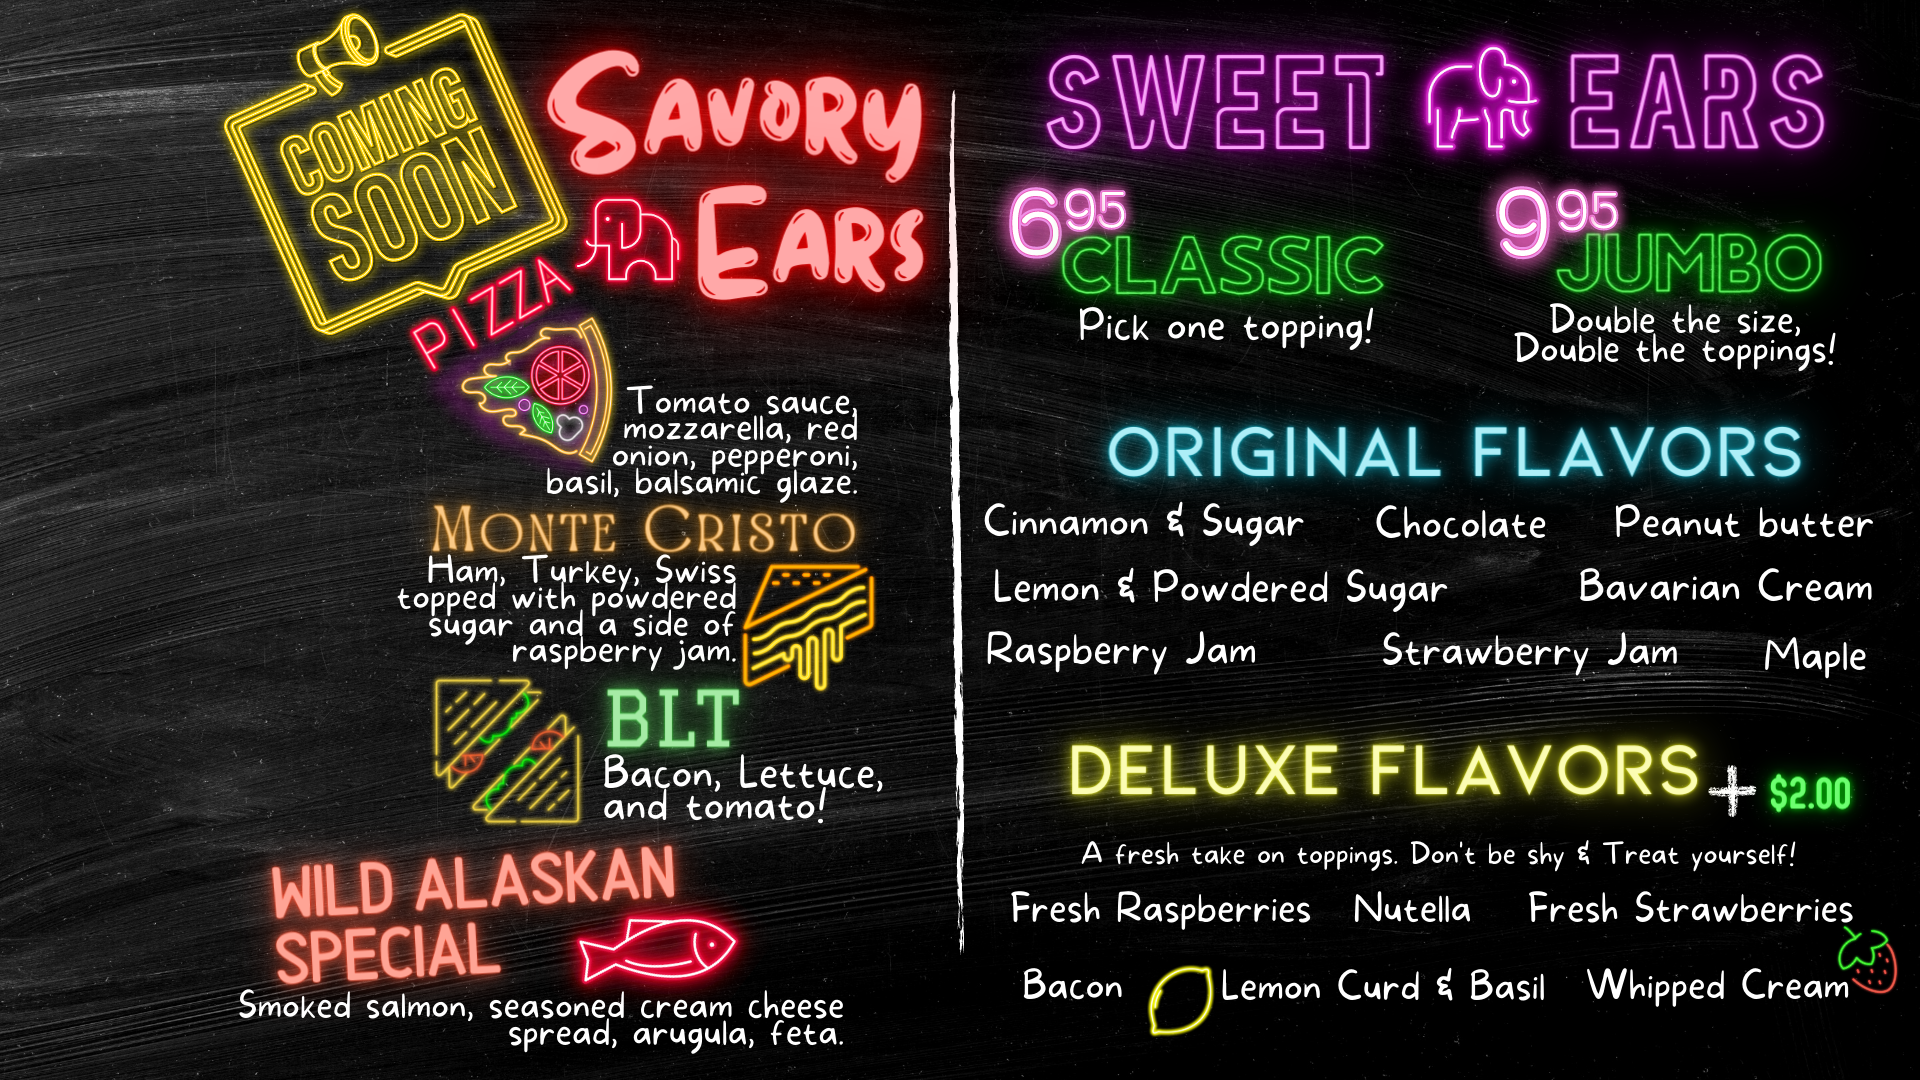 COMING
SOON
SAVORY
EARS
PIZZA
Tomato sauce,
mozzarella, red
onion, pepperoni,
basil, balsamic glaze.
MONTE CRISTO
Ham, Turkey, Swiss
topped with powdered
sugar and a side of
raspberry jam.
BLT
Bacon, Lettuce,
and tomato!
WILD ALASKAN
SPECIAL
Smoked salmon, seasoned cream cheese
spread, arugula, feta.
SWEET EARS
695 CLASSIC
Pick one topping!
995 JUMBO
Double the size,
Double the toppings!
ORIGINAL FLAVORS
Cinnamon & Sugar Chocolate Peanut butter
Lemon & Powdered Sugar Bavarian Cream
Raspberry Jam Strawberry Jam Maple
DELUXE FLAVORS + $2.00
A fresh take on toppings. Don't be shy & Treat yourself!
Fresh Raspberries Nutella Fresh Strawberries
Bacon Lemon Curd & Basil Whipped Cream